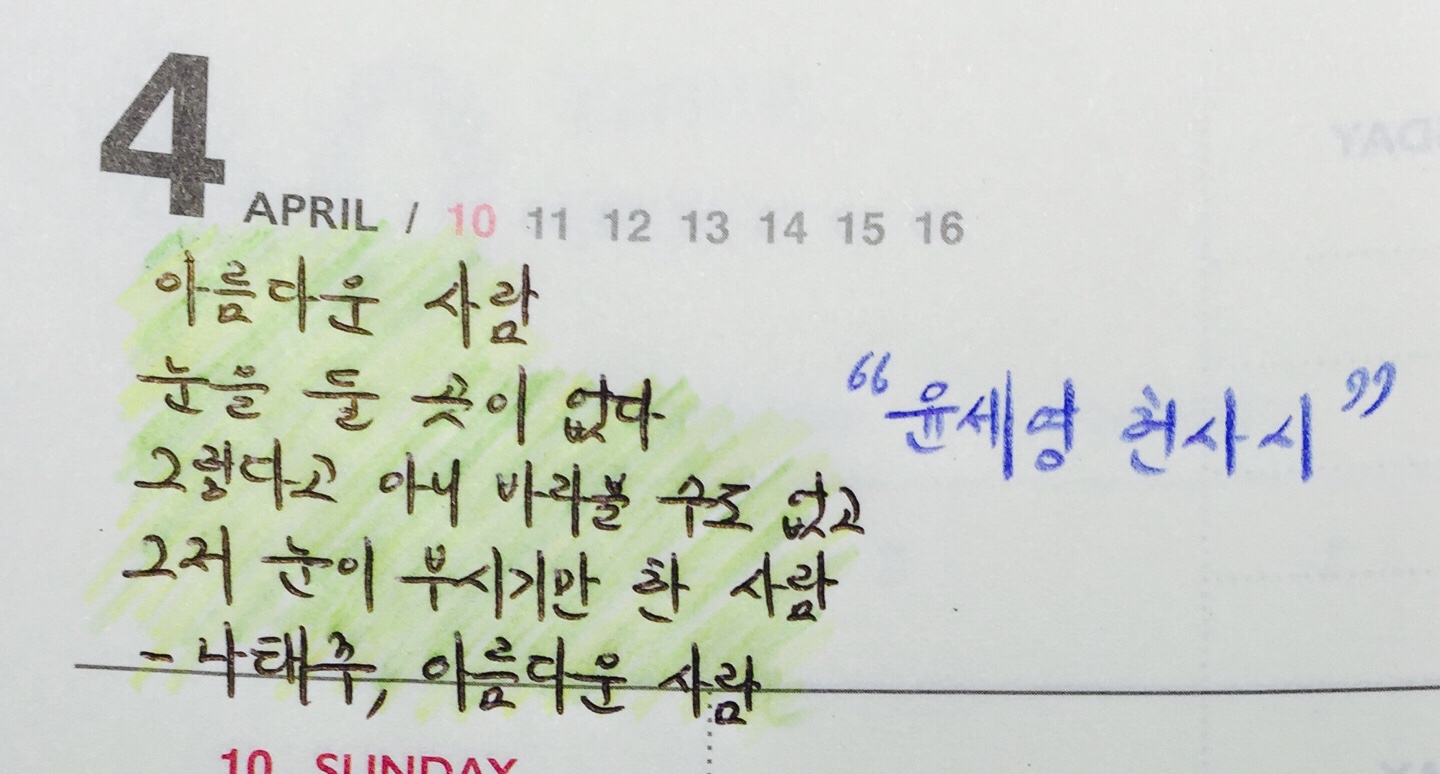 4 APRIL / 10 11 12 13 14 15 16
아름다운 사람
눈을 둘 곳이 없다
그렇다고 아니 바라볼 수도 없고
그저 눈이 부시기만 한 사람
- 나태주, 아름다운 사람
“윤세영 헌사시”
10 SUNDAY